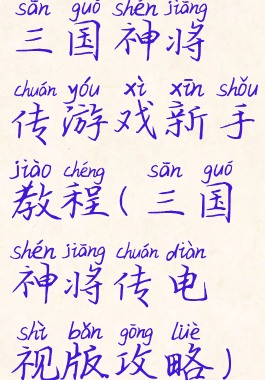 sān guó shén jiāng
三国神将
chuán yóu xì xīn shǒu
传游戏新手
jiào chéng sān guó
教程(三国
shén jiāng chuán diàn
神将传电
shì bǎn gōng lüè
视版攻略)